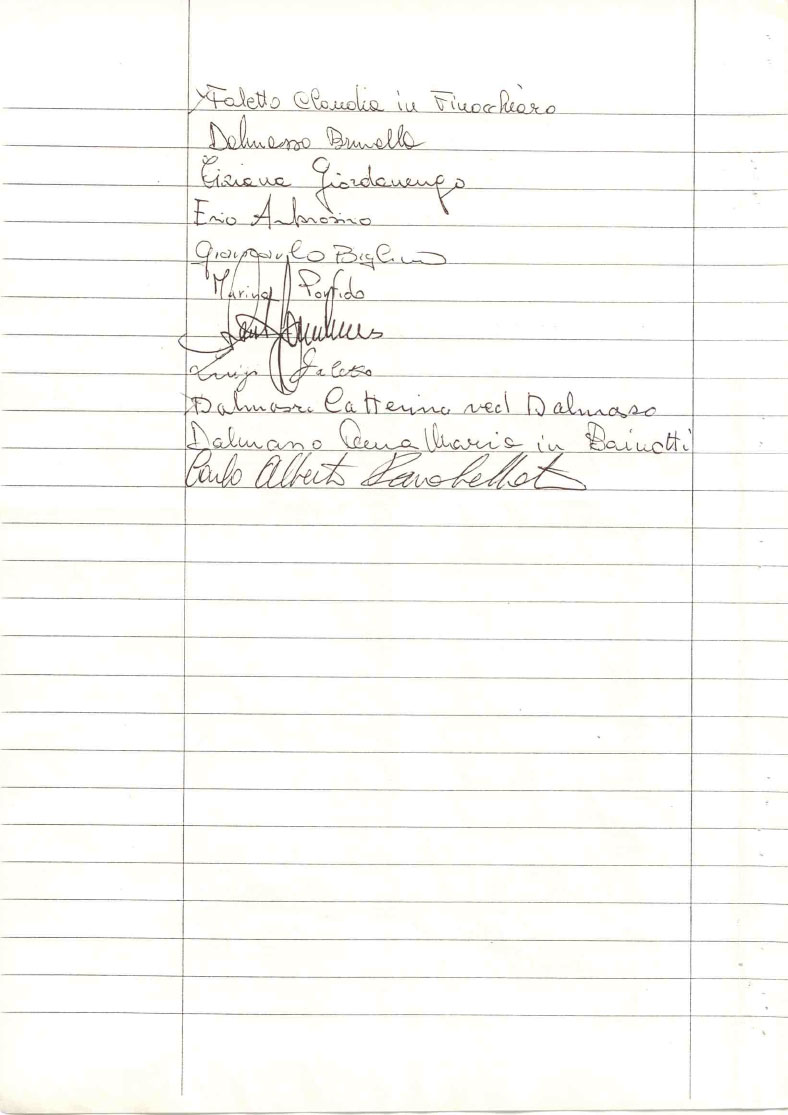 Faletto Claudia in Finocchiaro
Dalmasso Brunella
Tiziana Giordanengo
Enio Ambrosino
Giampaolo Biglino
Marina Porfido
Luigi Faletto
Dalmasso Catterina ved Dalmasso
Dalmasso Anna Maria in Bainotti
Carlo Alberto